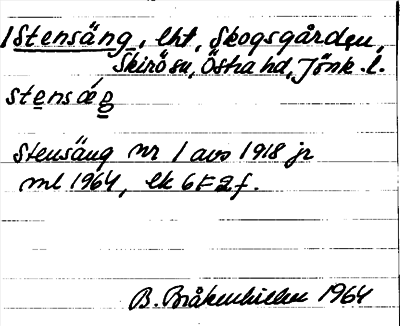 1 Stensäng, lht, Skogsgården,
Skirö sn, Östra hd, Jönk. l.
stensǽg
Stensäng nr 1 avs 1918 jr
ml 1964, ek 6F2f.
B. Bråkenhielm 1964